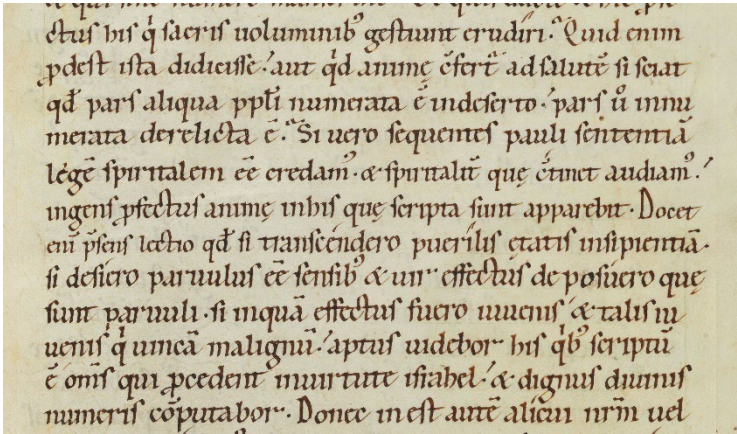 ctus his q̇ sacris uoluminib᷒ gestiunt erudiri. Quid enim
ꝓdest ista didicisse? aut q̇d animę c̄fert᷑ ad salutē si sciat
qđ pars aliqua ppłi numerata ē indeserto. pars ů innu
merata derelicta ē. Si uero sequentes pauli sententiā
legē spiritalem eē credam᷒. & spiritalit᷑ quę c̄tinet audiam᷒.
ingens ꝓfectus animę inhis quę scripta sunt apparebit. Docet
eni p̄sens lectio qđ si transcendero puerilis ętatis insipientiā.
si desiero paruulus eē sensib᷒ & uir effectus deposuero quę
sunt paruuli. si inquā effectus fuero iuuenis & talis iu
uenis q̇ uincā malignū. aptus uidebor his q̇b᷒ scriptū
ē om̄s qui ꝓcedent inuirtute israhel. & dignus diuinis
numeris cōputabor. Donec inest autē alicui nr̄m uel